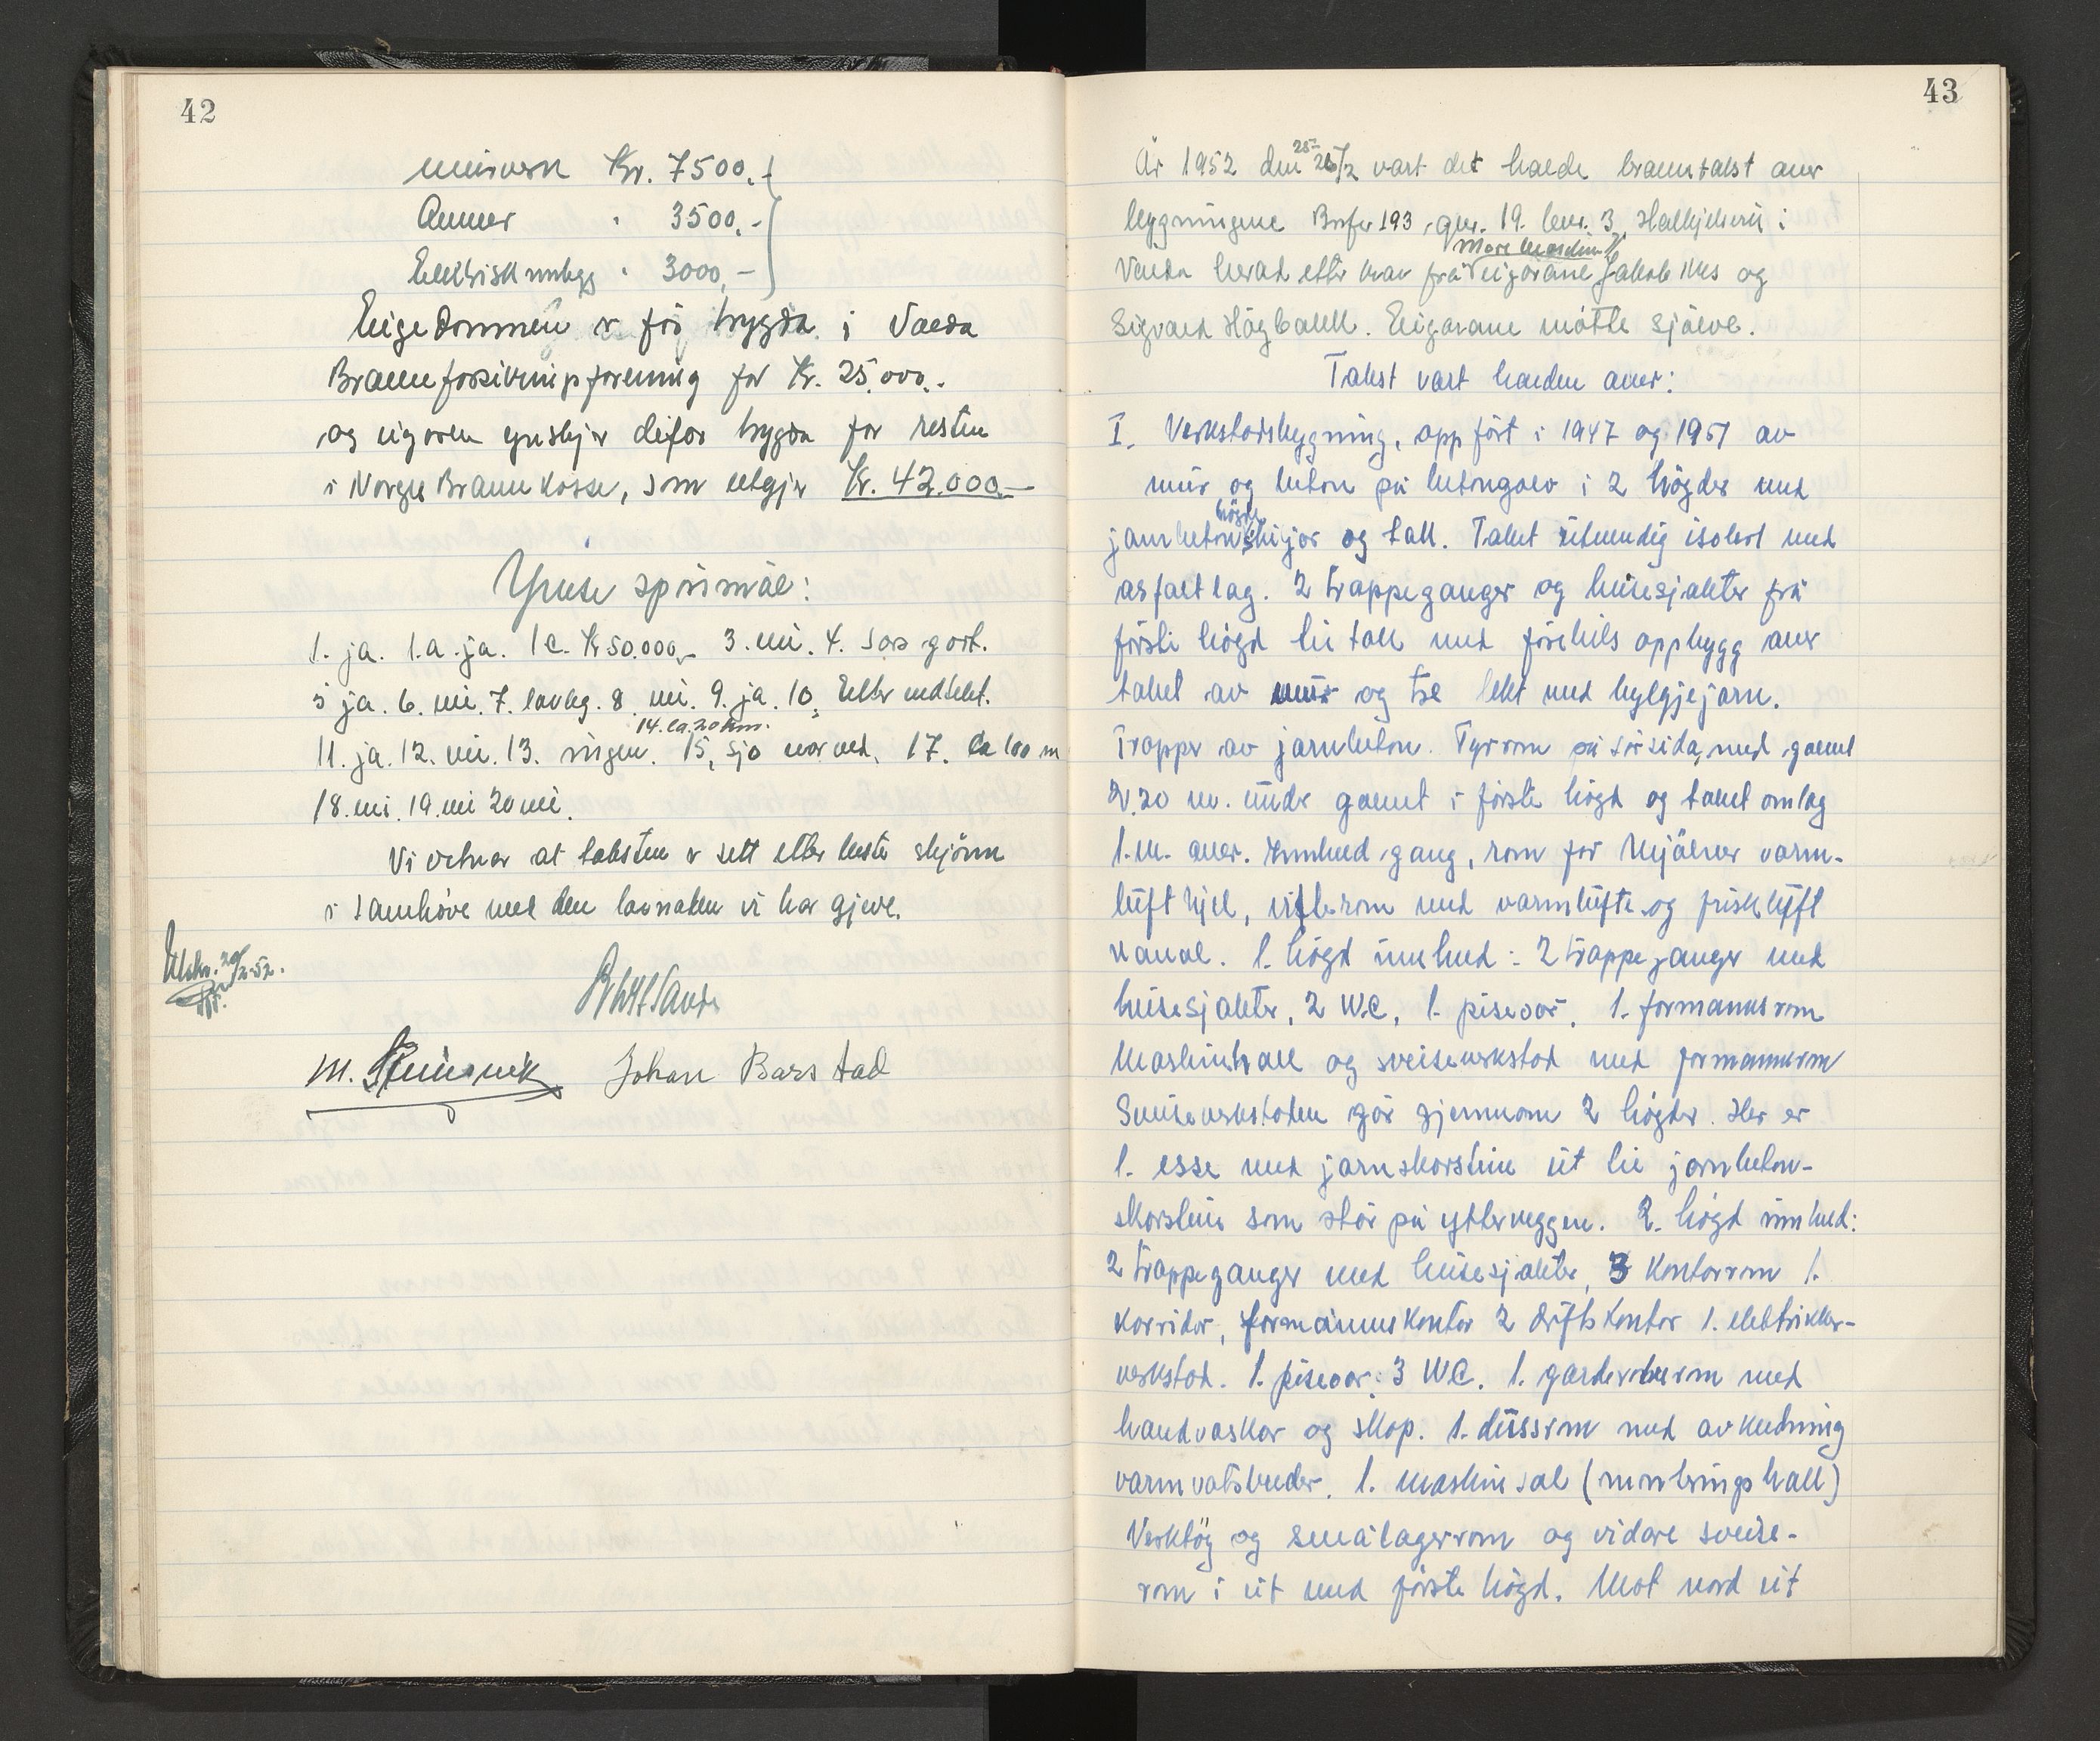 42
murverk Kr. 7500.-
Anner " 3500.-
Elektrisk innlegg " 3000,-
Eigedommen er før trygda i Volda
Brannforsikringsforening for Kr. 25.000.-
og eigaren ynskjer difor trygda for resten
i Norges Brannkasse, som utgjer Kr. 42.000.-
Ymse spörsmål:
1. ja. 1.a. ja. 1c. Kr 50.000,- 3. nei. 4. Sers godt.
5 ja. 6. nei. 7. lovleg. 8. nei. 9. ja. 10. Etter vedtekt.
14. ca. 20 km.
11. ja. 12. nei. 13. ingen. 15, sjø nærved. 17. Ca 100 m
18. nei. 19. nei 20 nei.
Vi vitnar at taksten er sett etter beste skjönn
i samhöve med den lovnaden vi har gjeve.
Utskr. 29/2-52.
M. Johan Barstad
43
År 1952 den 25- 26/2 vart det halde branntakst over
bygningene Brnfr 193, gnr. 19. bnr. 3, i
Volda herad etter krav frå eigarane Jakob og
Sigvard Högball. Eigarane møtte sjølve.
Takst vart halden over:
I. Verkstadsbygning, oppfört i 1947 og 1951 av
mur og betong på betonggolv i 2 högder med
högde
jarnbetongskiljor og tak. Taket utvendig isolert med
asfaltlag. 2 trappeganger og heisesjakter frå
förste högd til tak med förehels oppbygg over
taket av mur og tre tekt med bylgjejarn.
Trapper av jarnbetong. Fyrrom på sørsida, med golvet
2.20 m. under golvet i förste högd og taket omlag
1. m. over. Innheld gang, rom for kjølner varm-
luft kjel, vifterom med varmlufts og friskluft
kanal. 1. högd innheld: 2 trappeganger med
heisesjakter, 2 W.C, 1. pisoar. 1. formannsrom
Maskinhall og sveiseverkstad med formannsrom
Sveiseverkstaden går gjennom 2 högder. Her er
1. esse med jarnskorstein ut til jarnbetong-
skorstein som står på ytterveggen. 2. högd innheld:
2 trappeganger med heisesjakter, 3 Kontorrom 1.
korridor, formannskontor 2 driftskontor 1. elektriker-
verkstad. 1. pisoar. 3 WC. 1. garderoberom med
handvaskar og skap. 1. dussrom med avkledning
varmvatsbereder. 1. maskinsal (monteringshall)
Verktöy og smålagerrom og vidare sveise-
rom i eit med förste högd. Mot nord eit